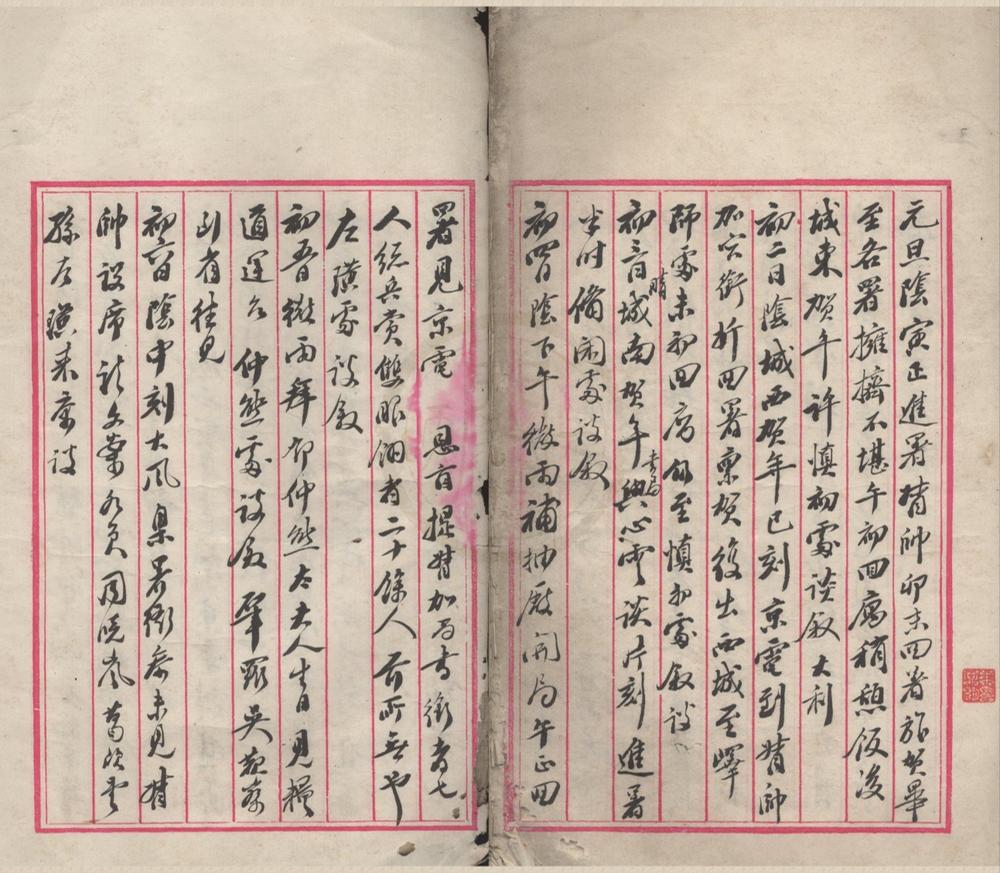 元旦陰寅正進署督帥卯末回署旅賀畢
至各署擁擠不堪午初回寓稍憩飯後
城東賀年許慎初處談敘大利
初二日陰城西賀年巳刻京電到督帥
加宮銜折回署稟賀復出西城至嶧
師處未初回寓飯至慎初處敘談
初三日晴城南賀年書局與心雲談片刻進署
半時備閑處談敘
初四日陰下午微雨補抽厘開局午正回
署見京電 恩旨提督加尚書銜者七
人總兵賞雙眼翎者二十餘人前所無也
左璜處談敘
初五日微雨拜仲然太夫人生日見糧
道運台仲然處談敘 吳夜齋
到省往見
初六日陰申刻大風臬署衙參未見督
帥設席文案各員同曉嵐葛
孫左璜來齋談